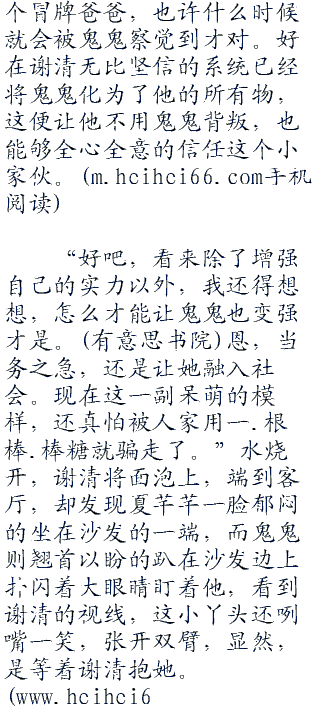 个冒牌爸爸，也许什么时候
就会被鬼鬼察觉到才对。好
在谢清无比坚信的系统已经
将鬼鬼化为了他的所有物，
这便让他不用鬼鬼背叛，也
能够全心全意的信任这个小
家伙。(m.hcihci66.com手机
阅读)
“好吧，看来除了增强
自己的实力以外，我还得想
想，怎么才能让鬼鬼也变强
才是。(有意思书院)恩，当
务之急，还是让她融入社
会。现在这一副呆萌的模
样，还真怕被人家用一.根
棒.棒糖就骗走了。”水烧
开，谢清将面泡上，端到客
厅，却发现夏芊芊一脸郁闷
的坐在沙发的一端，而鬼鬼
则翘首以盼的趴在沙发边上
扑闪着大眼睛盯着他，看到
谢清的视线，这小丫头还咧
嘴一笑，张开双臂，显然，
是等着谢清抱她。
(www.hcihci6